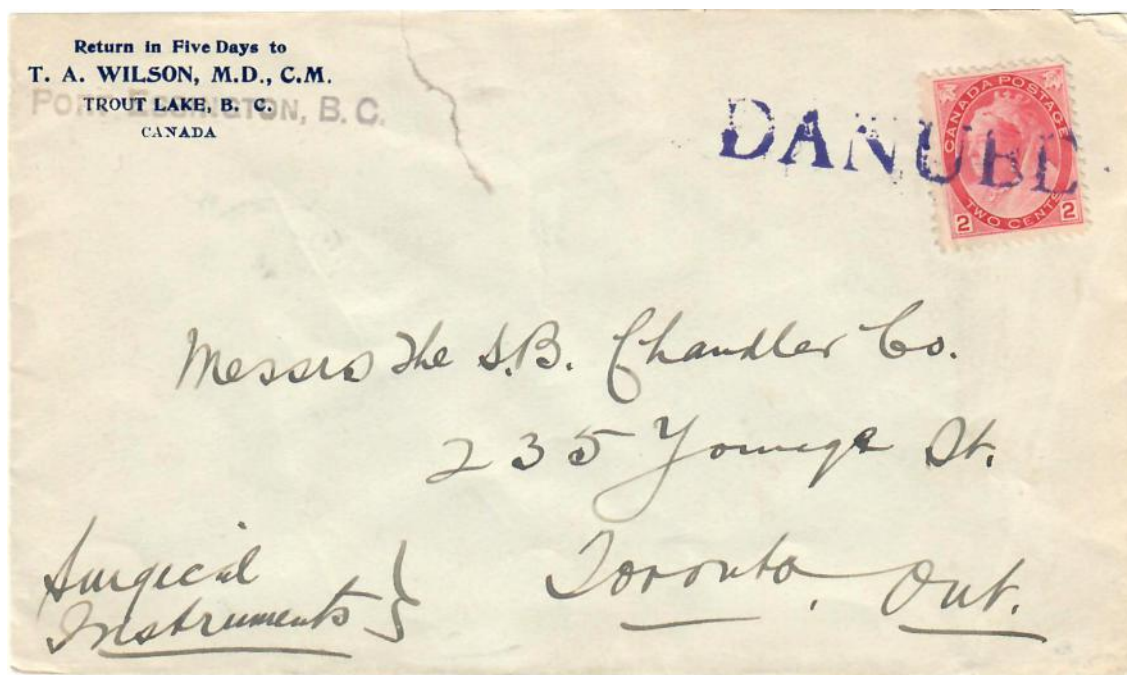 Return in Five Days to
T. A. WILSON, M.D., C.M.
TROUT LAKE, B. C.
PORT ESSINGTON, B. C.
CANADA
DANUBE
CANADA POSTAGE
2 TWO CENTS 2
Messrs The S.B. Chandler Co.
235 Younge St.
Toronto, Ont.
Surgical
Instruments